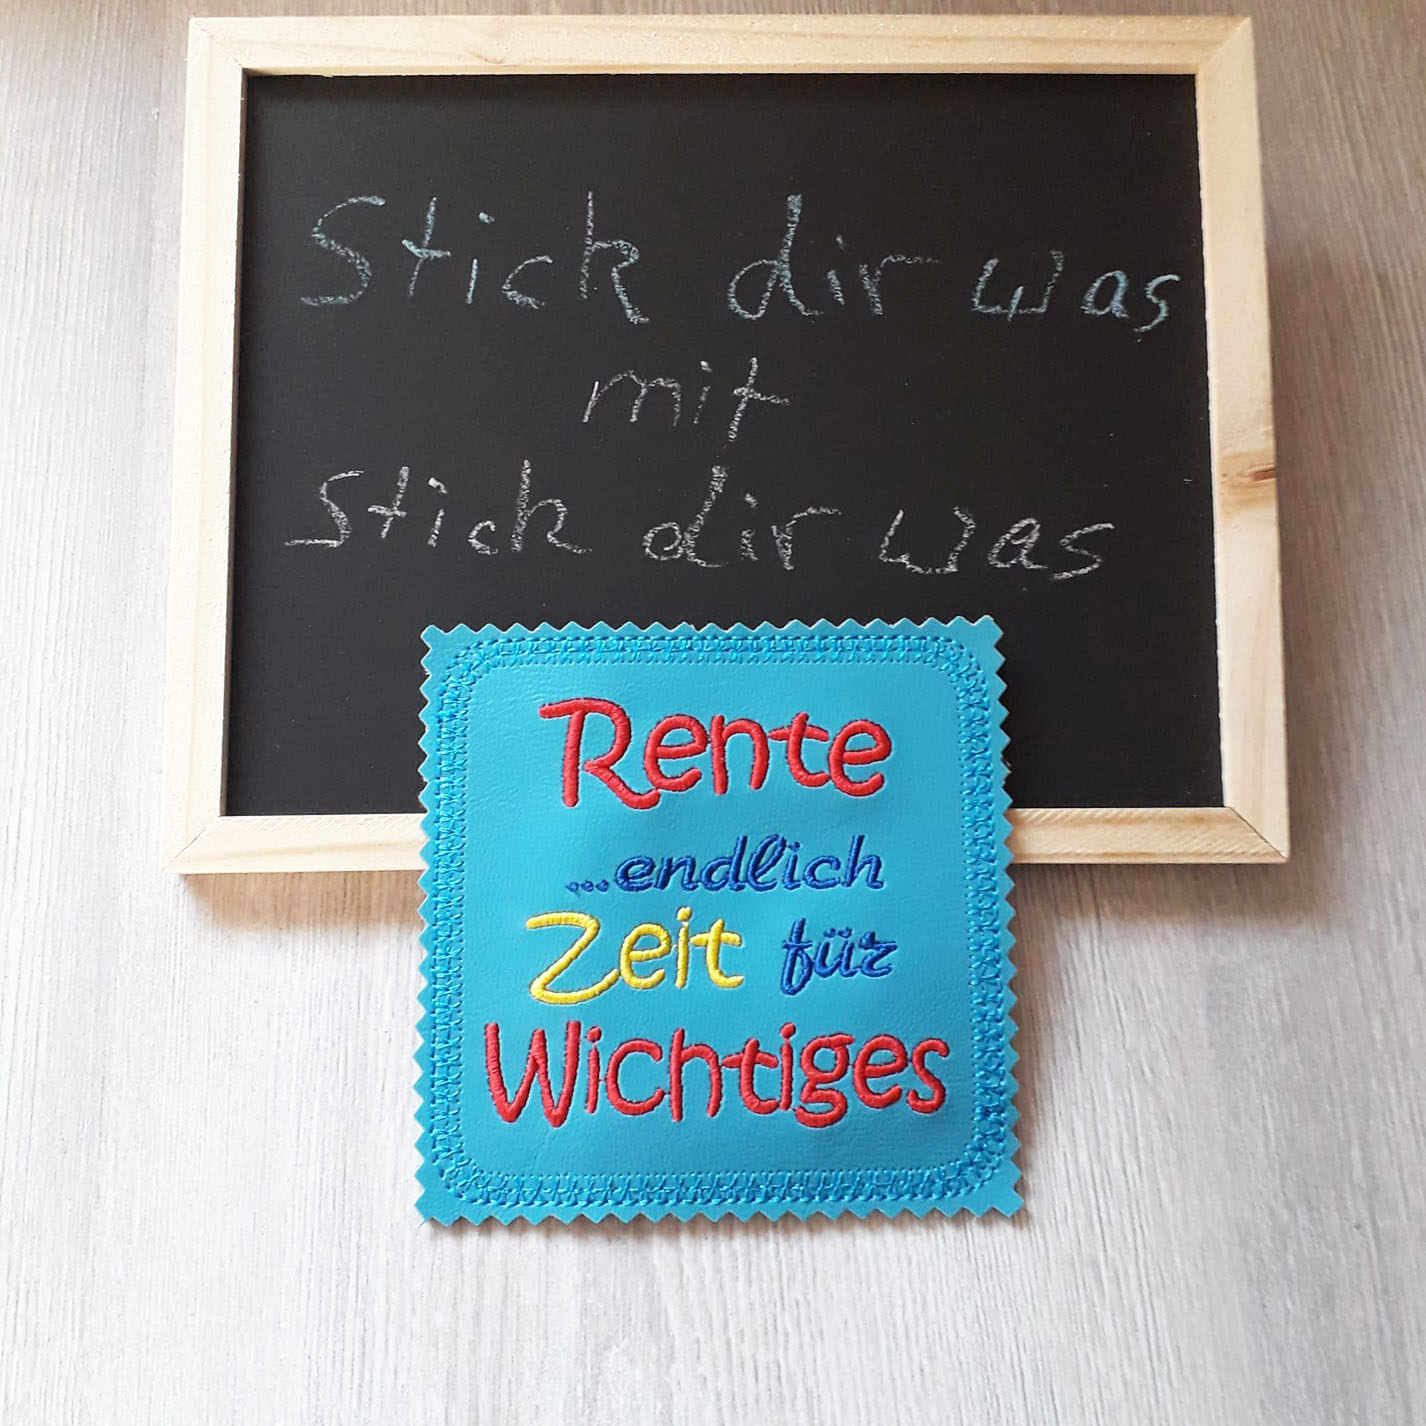 Stick dir was
mit
Stick dir was
Rente
...endlich
Zeit für
Wichtiges